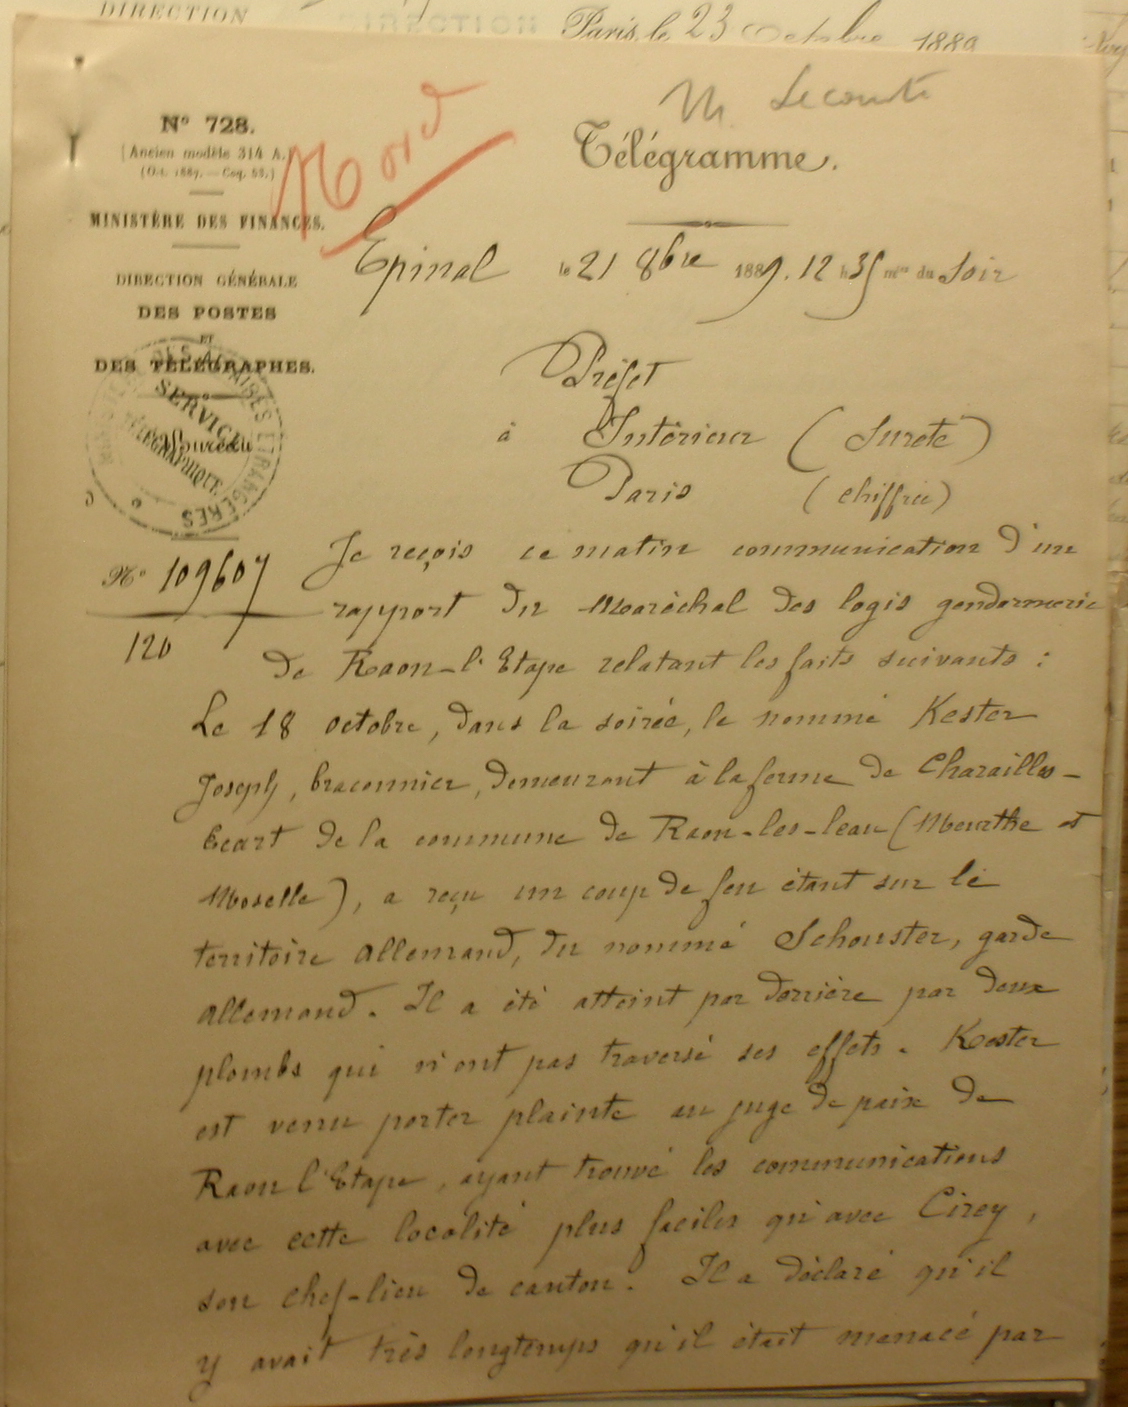 DIRECTION
DIRECTION Paris, le 23 Octobre 1889
M. Lecomte
Nord
N° 728.
(Ancien modèle 314 A.)
Télégramme.
MINISTÈRE DES FINANCES.
Epinal le 21 8bre 1889. 12 h 35 mes du Soir
DIRECTION GÉNÉRALE
DES POSTES
ET
DES TÉLÉGRAPHES.
SERVICE
TÉLÉGRAPHIQUE
AFFAIRES ÉTRANGÈRES
Bureau
Préfet
à Intérieur (Sureté)
Paris (chiffrée)
N° 109607
120
Je reçois ce matin communication d'un
rapport du Maréchal des logis gendarmerie
de Raon-l'Etape relatant les faits suivants :
Le 18 octobre, dans la soirée, le nommé Kester
Joseph, braconnier, demeurant à la ferme de Charailles-
Ecart de la commune de Raon-les-leau (Meurthe et
Moselle), a reçu un coup de feu étant sur le
territoire allemand, du nommé Schouster, garde
allemand. Il a été atteint par derrière par deux
plombs qui n'ont pas traversé ses effets. Kester
est venu porter plainte au juge de paix de
Raon l'Etape, ayant trouvé les communications
avec cette localité plus faciles qu'avec Cirey,
son chef-lieu de canton. Il a déclaré qu'il
y avait très longtemps qu'il était menacé par